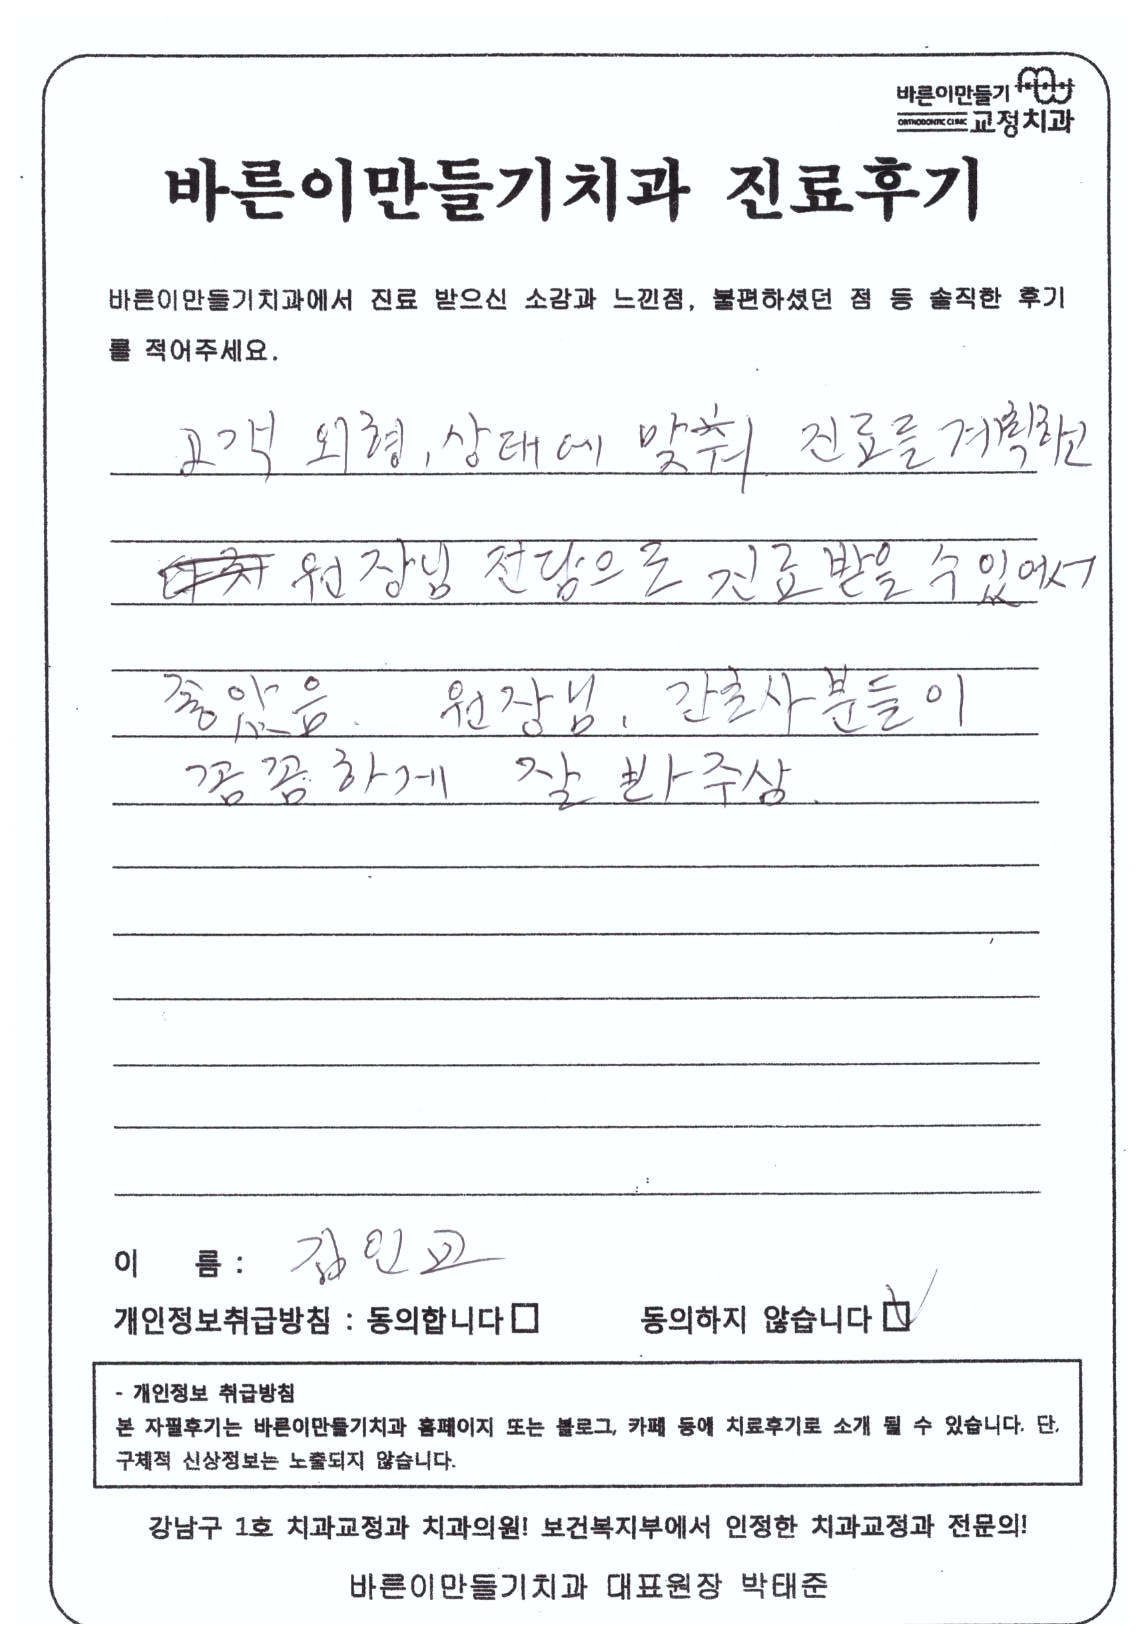 바른이만들기
ORTHODONTIC CLINIC 교정치과
바른이만들기치과 진료후기
바른이만들기치과에서 진료 받으신 소감과 느낀점, 불편하셨던 점 등 솔직한 후기
를 적어주세요.
고객 외형, 상태에 맞춰 진료를 계획하고
원장님 전담으로 진료받을 수 있어서
좋았음. 원장님, 간호사분들이
꼼꼼하게 잘 봐주심.
이 름 : 김인교
개인정보취급방침 : 동의합니다 □ 동의하지 않습니다 ☑
- 개인정보 취급방침
본 자필후기는 바른이만들기치과 홈페이지 또는 블로그, 카페 등에 치료후기로 소개 될 수 있습니다. 단,
구체적 신상정보는 노출되지 않습니다.
강남구 1호 치과교정과 치과의원! 보건복지부에서 인정한 치과교정과 전문의!
바른이만들기치과 대표원장 박태준